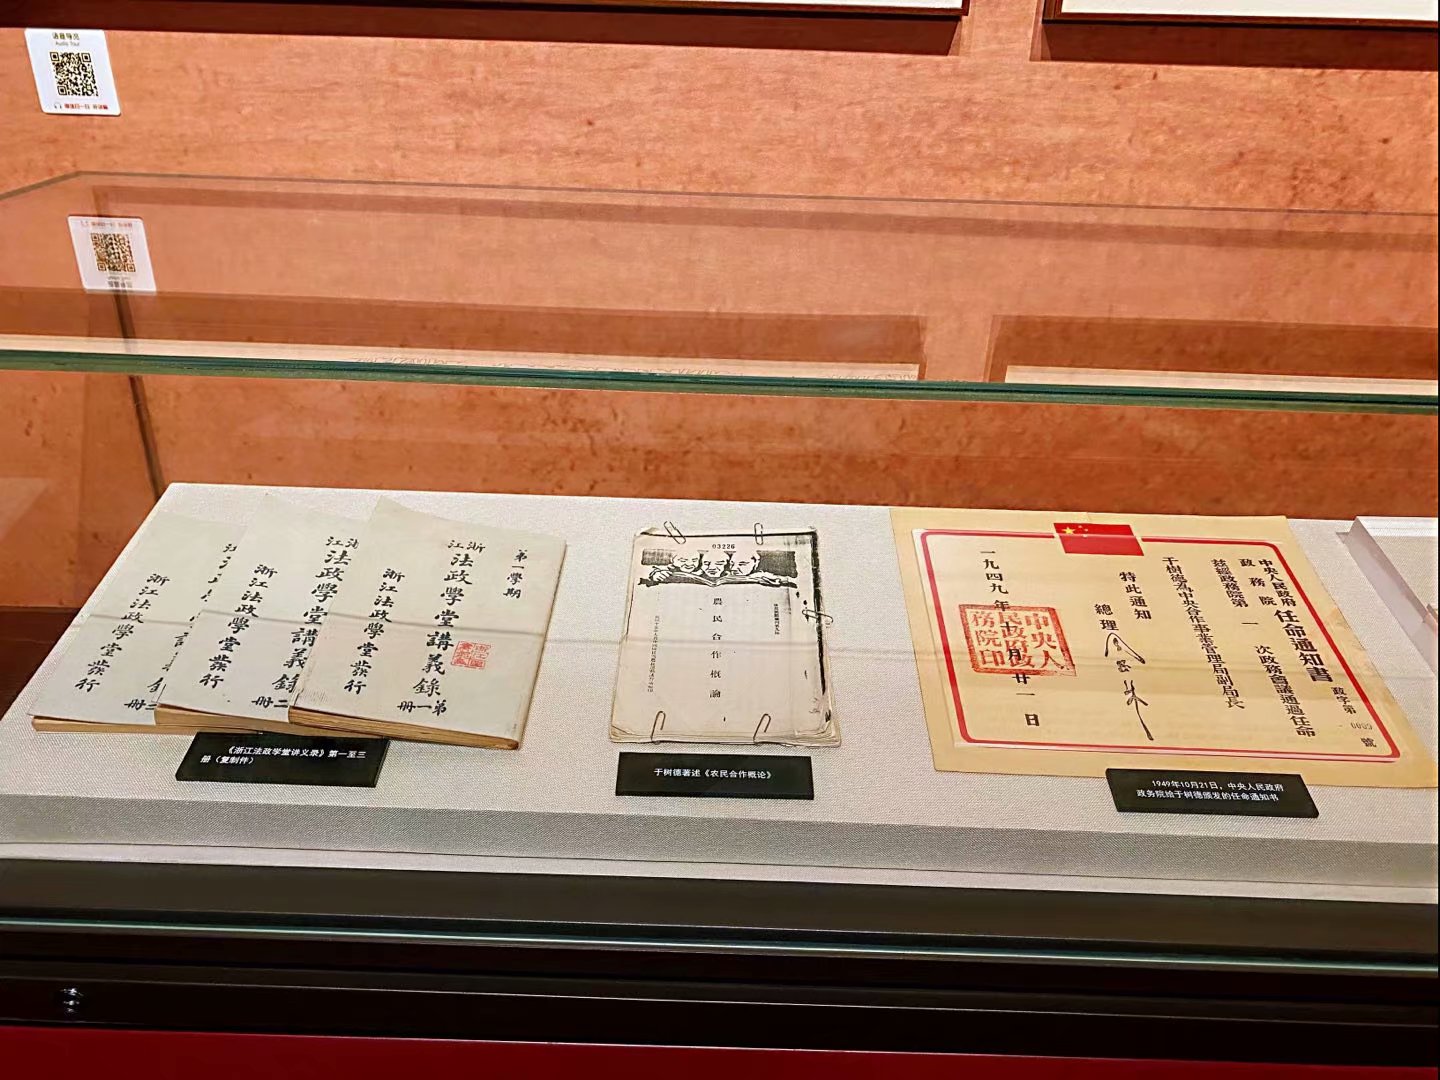 语音导览
Audio Tour
第一學期
浙江
法政學堂講義錄
第一冊
浙江法政學堂發行
浙江
法政學堂講義錄
二冊
浙江法政學堂發行
江
三冊
浙江法政學堂發行
《浙江法政学堂讲义录》第一至三
册(复制件)
03226
農民合作概論
于树德著述《农民合作概论》
中央人民政府
政務院
任命通知書
政字第0009號
茲經政務院第一次政務會議通過任命
于樹德為中央合作事業管理局副局長
特此通知
總理
周恩來
一九四九年十月廿一日
中央人
民政府政
務院印
1949年10月21日,中央人民政府
政务院给于树德颁发的任命通知书